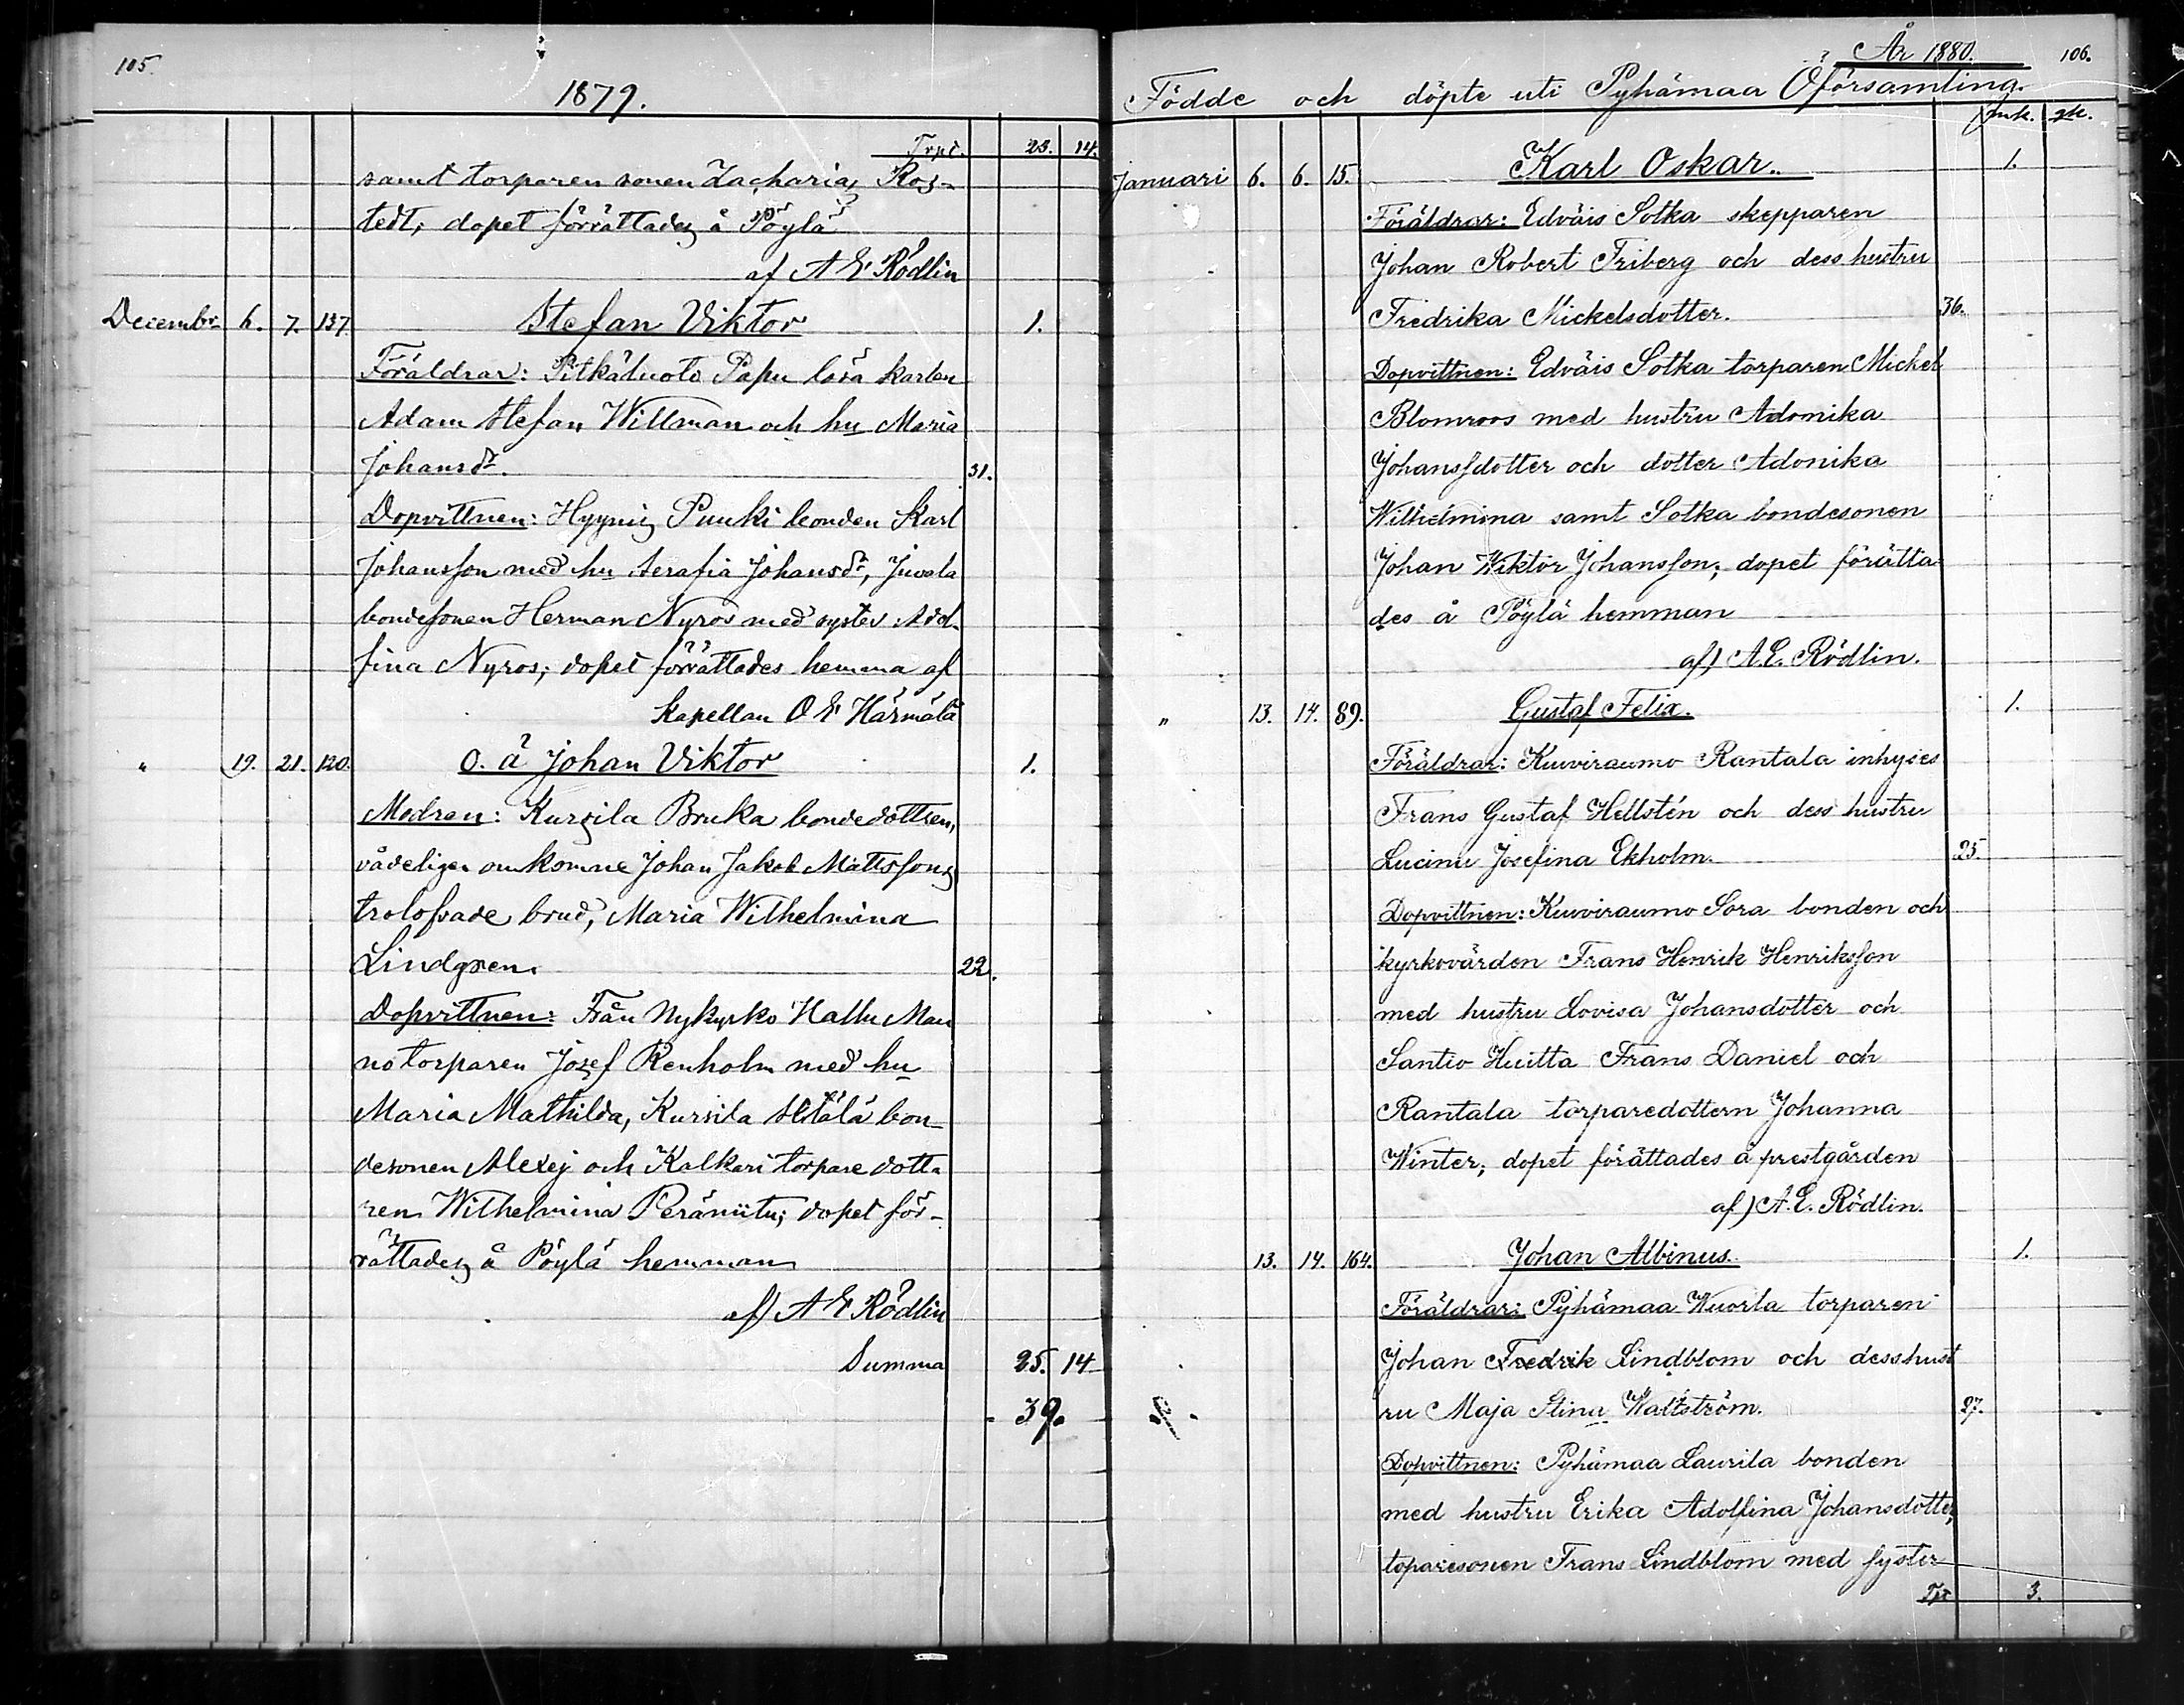 105.
1879.
Trpt. 23. 14.
samt torparen sonen Zacharias Ros-
tedt; dopet förrättades å Pöylä
af A E Rödlin
Decembr. 6. 7. 137. Stefan Viktor 1.
Föräldrar: Pitkäluoto Papu lösa karlen
Adam Stefan Willman och hu Maria
Johansdr. 31.
Dopvittnen: Hyynis Puuki bonden Karl
Johansson med hu Serafia Johansdr, Juvala
bondesonen Herman Nyros med syster Adol-
fina Nyros; dopet förrättades hemma af
Kapellan O E Härmälä
" 19. 21. 120. O. ä Johan Viktor 1.
Modren: Kursila Bruka bondedottren,
vådeligen omkomne Johan Jakob Mattssons
trolofvade brud, Maria Wilhelmina
Lindgren. 22.
Dopvittnen: Från Nykyrko Hallu Man
no torparen Josef Renholm med hu
Maria Mathilda, Kursila bon-
desonen Alexej och Kalkari torpare dott
ren Wilhelmina Peräniitu; dopet för-
rättades å Pöylä hemman
af) A E Rödlin
Summa 25. 14
39.
År 1880. 106.
Födde och döpte uti Pyhämaa Öförsamling.
mk. qk.
Januari 6. 6. 15. Karl Oskar. 1.
Föräldrar: Edväis Sotka skepparen
Johan Robert Friberg och dess hustru
Fredrika Mickelsdotter. 36.
Dopvittnen: Edväis Sotka torparen Mickel
Blomroos med hustru Adonika
Johansdotter och dotter Adonika
Wilhelmina samt Sotka bondesonen
Johan Wiktor Johansson; dopet förätta-
des å Pöylä hemman
af) A.E. Rödlin.
" 13. 14. 89. Gustaf Felix. 1.
Föräldrar: Kuiviraumo Rantala inhyses
Frans Gustaf Hellstén och dess hustru
Lucina Josefina Ekholm. 25.
Dopvittnen: Kuiviraumo Sora bonden och
kyrkovärden Frans Henrik Henriksson
med hustru Lovisa Johansdotter och
Santio Huitta Frans Daniel och
Rantala torparedottern Johanna
Winter; dopet förättades å prestgården
af) A.E. Rödlin.
13. 14. 164. Johan Albinus. 1.
Föräldrar: Pyhämaa Wuorla torparen
Johan Fredrik Lindblom och dess hust
ru Maja Stina Wallström. 27.
Dopvittnen: Pyhämaa Laurila bonden
med hustru Erika Adolfina Johansdotter,
toparesonen Frans Lindblom med syster
Tpt 3.